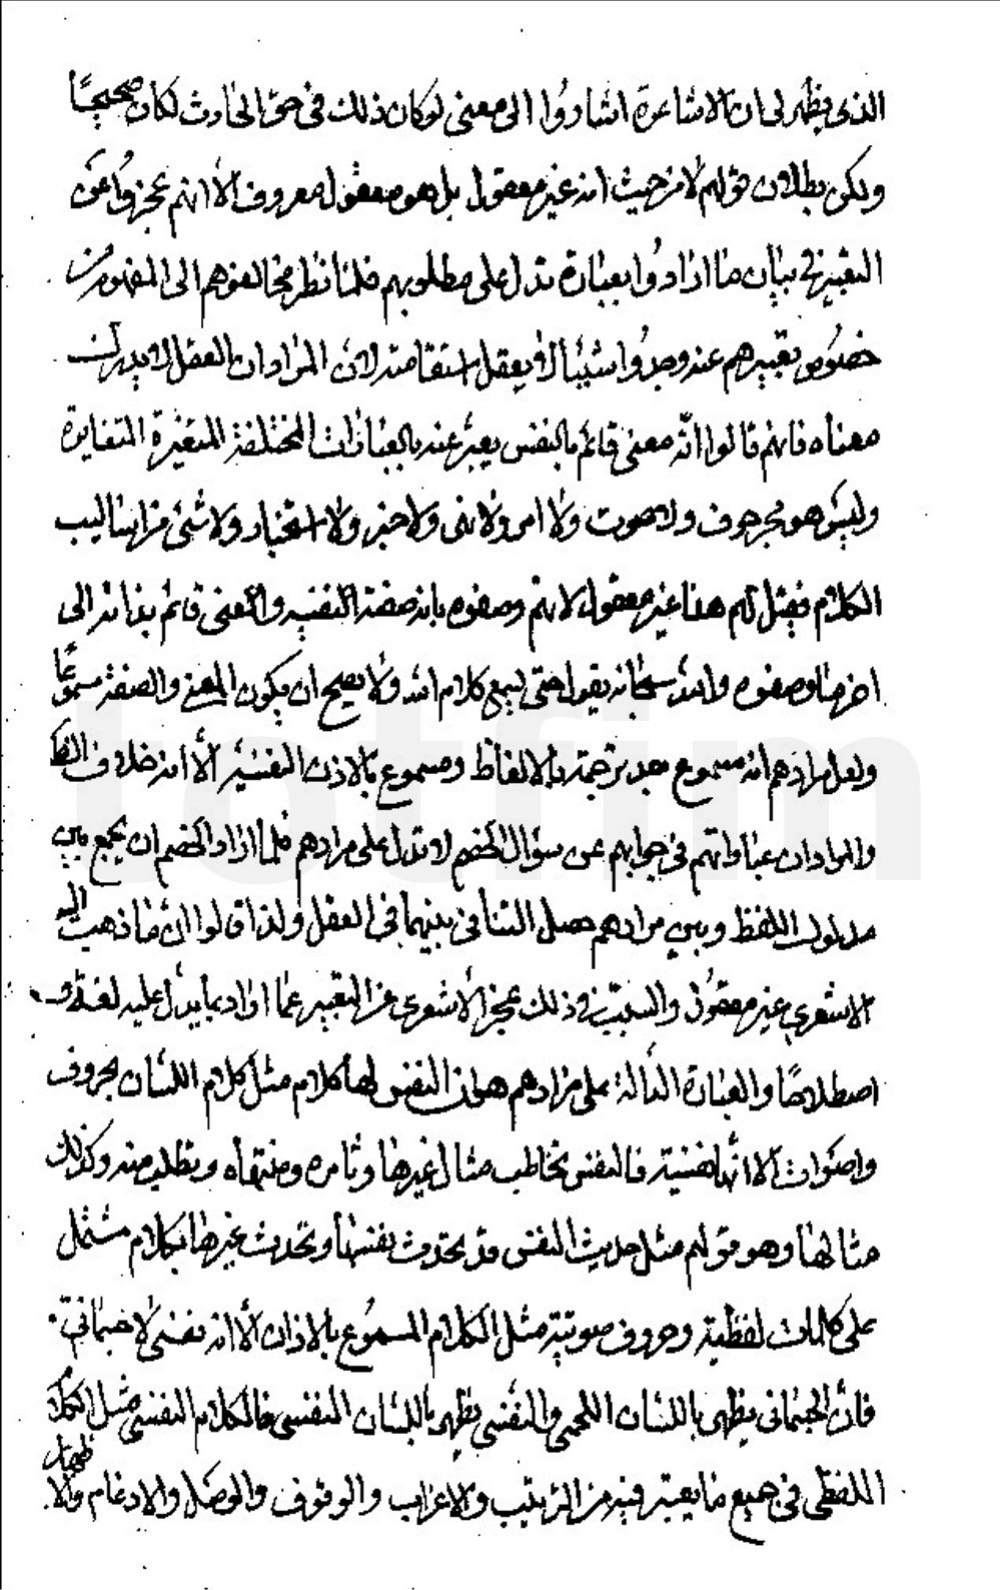 الذى يظهر لى ان الاشاعرة اشاروا الى معنى لو كان ذلك فى حق الحادث لكان صحيحًا
ولكن بطلان قولهم لا من حيث انه غير معقول بل هو معقول معروف الا انهم عجزوا عن
التعبير فى بيان ما ارادوا بعبارة تدل على مطلوبهم فلما نظر مخالفوهم الى المفهوم من
خصوص تعبيرهم عنه وجدوا شيئا لا يعقل استقامته لان المراد ان العقل لا يدرك
معناه فانهم قالوا انّه معنى قائم بالنفس يعبر عنه بالعبارات المختلفة المتغيرة المتغايرة
وليس هو بحروف ولا صوت ولا امر ولا نهى ولا خبر ولا استخبار ولا شئ من اساليب
الكلام فقيل لهم هذا غير معقول لانهم وصفوه بانه صفة النفسية والمعنى قائم بذاته الى
اخر ما وصفوه والله سبحانه يقول حتى يسمع كلام الله ولا يصح ان يكون المعنى والصفة مسموعًا
ولعل مرادهم انه مسموع بعد ترجمته بالالفاظ ومسموع بالاذن النفسية الا انه خلاف الظا
والمراد ان عباراتهم فى جوابهم عن سؤال الخصم لا تدل على مرادهم فلما اراد الخصم ان يجمع بين
مدلول اللفظ وبين مرادهم حصل التنافى بينهما فى العقل ولذا قالوا ان ما ذهب اليه
الاشعرى غير معقول والسبب فى ذلك عجز الاشعرى عن التعبير عما اراد بما يدل عليه لغة و
اصطلاحًا والعبارة الدالة على مرادهم هو ان النفس لها كلام مثل كلام اللسان بحروف
واصوات الا انها نفسية فالنفس تخاطب مثال غيرها وتامره وتنهاه وتطلب منه وكذلك
مثالها وهو قولهم مثل حديث النفس قد تحدث نفسها وتحدث غيرها بكلام مشتمل
على كلمات لفظية وحروف صوتية مثل الكلام المسموع بالاذان الا انه نفسى لا جسمانىّ
فان الجسمانى يظهر باللسان اللحمى والنفسى يظهر باللسان النفسى فالكلام النفسى مثل الكلام
اللفظى فى جميع ما يعتبر فيه من الترتيب والاعراب والوقوف والوصل والادغام والاظهار